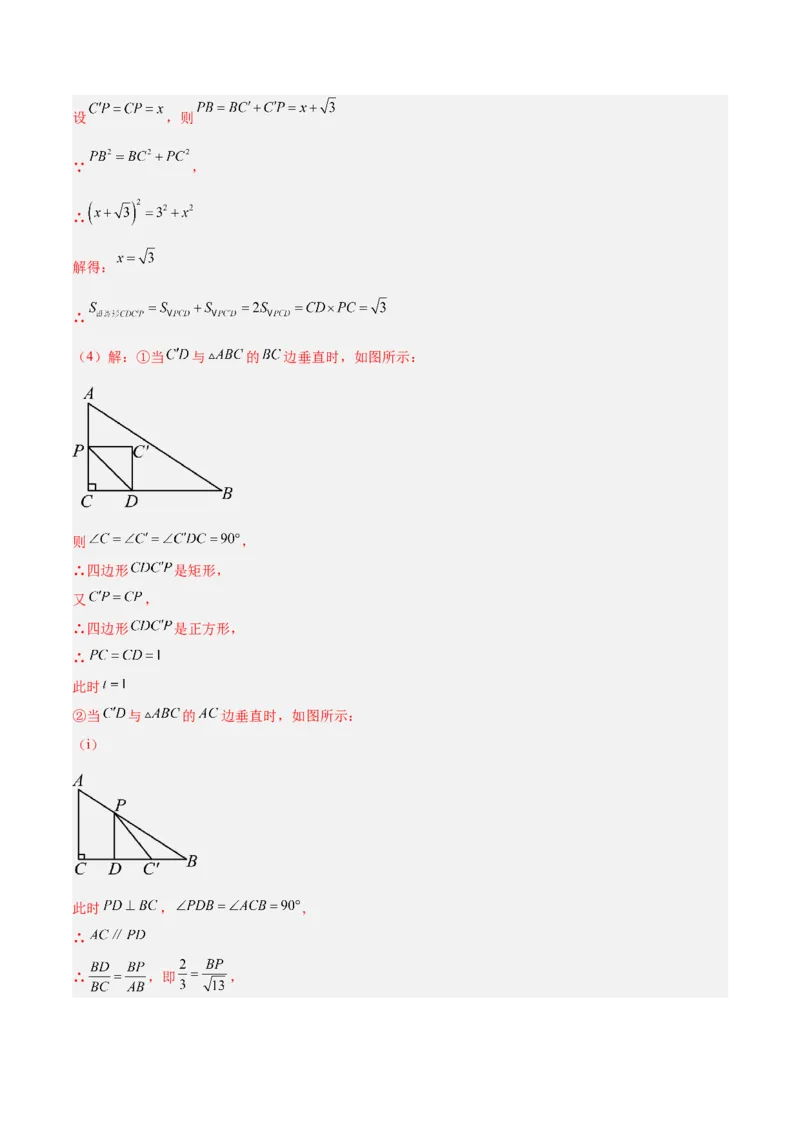 设 C′P=CP=x ，则 PB=BC′+C′P=x+√3
∵ PB²=BC²+PC² ，
∴ (x+√3)²=3²+x²
解得： x=√3
∴ S四边形CDC′P=S▽PCD+S▽PC′D=2S▽PCD=CD×PC=√3
（4）解：①当C′D 与 △ABC 的 BC 边垂直时，如图所示：
A
P C′
C D B
则 ∠C=∠C′=∠C′DC=90°，
∴四边形CDC′P 是矩形，
又 C′P=CP ，
∴四边形CDC′P 是正方形，
∴ PC=CD=1
此时 t=1
②当C′D 与 △ABC 的 AC 边垂直时，如图所示：
（i）
A
P
C D C′ B
此时 PD⊥BC ， ∠PDB=∠ACB=90°，
∴ AC∥PD
∴ BD/BC=BP/AB ，即 2/3=BP/√13 ，